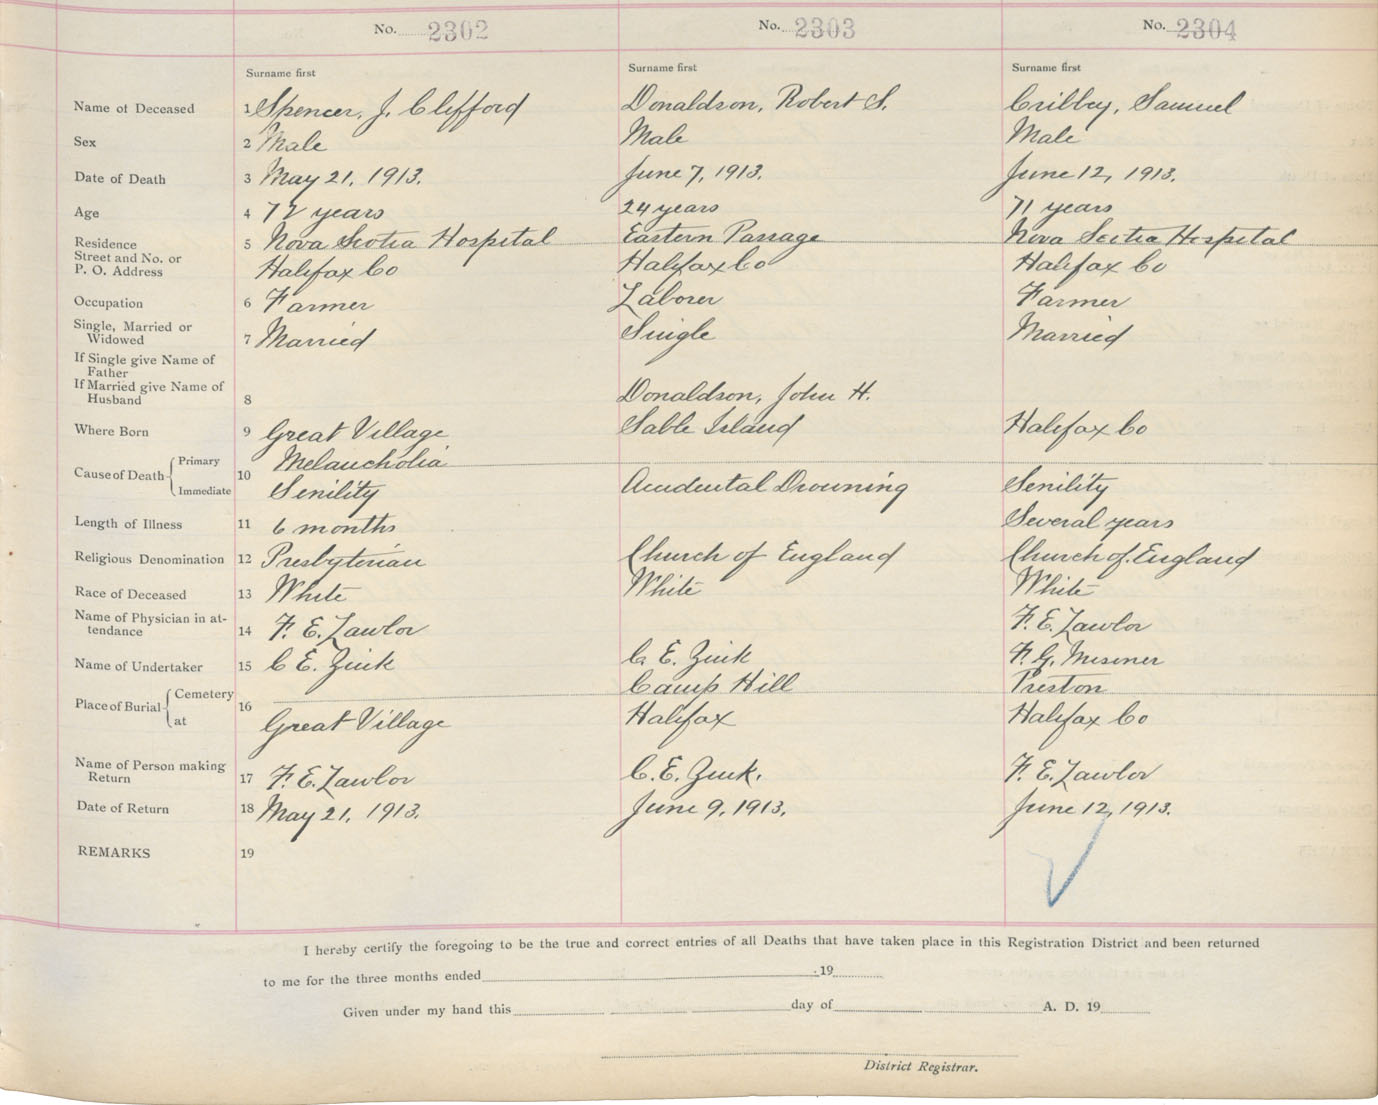 No. 2302 No. 2303 No. 2304
Surname first Surname first Surname first
Name of Deceased 1 Spencer, J. Clifford Donaldson, Robert S. Cribbey, Samuel
Sex 2 Male Male Male
Date of Death 3 May 21, 1913. June 7, 1913. June 12, 1913.
Age 4 72 years 24 years 71 years
Residence 5 Nova Scotia Hospital Eastern Passage Nova Scotia Hospital
Street and No. or
P. O. Address Halifax Co Halifax Co Halifax Co
Occupation 6 Farmer Laborer Farmer
Single, Married or
Widowed 7 Married Single Married
If Single give Name of
Father
If Married give Name of
Husband 8 Donaldson, John H.
Where Born 9 Great Village Sable Island Halifax Co
Cause of Death Primary 10 Melancholia
Immediate Senility Accidental Drowning Senility
Length of Illness 11 6 months Several years
Religious Denomination 12 Presbyterian Church of England Church of England
Race of Deceased 13 White White White
Name of Physician in at-
tendance 14 F. E. Lawlor F. E. Lawlor
Name of Undertaker 15 C E. Zink C. E. Zink F. G. Misener
Place of Burial Cemetery 16 Camp Hill Preston
at Great Village Halifax Halifax Co
Name of Person making
Return 17 F. E. Lawlor C. E. Zink. F. E. Lawlor
Date of Return 18 May 21, 1913. June 9, 1913. June 12, 1913.
REMARKS 19
I hereby certify the foregoing to be the true and correct entries of all Deaths that have taken place in this Registration District and been returned
to me for the three months ended 19
Given under my hand this day of A. D. 19
District Registrar.